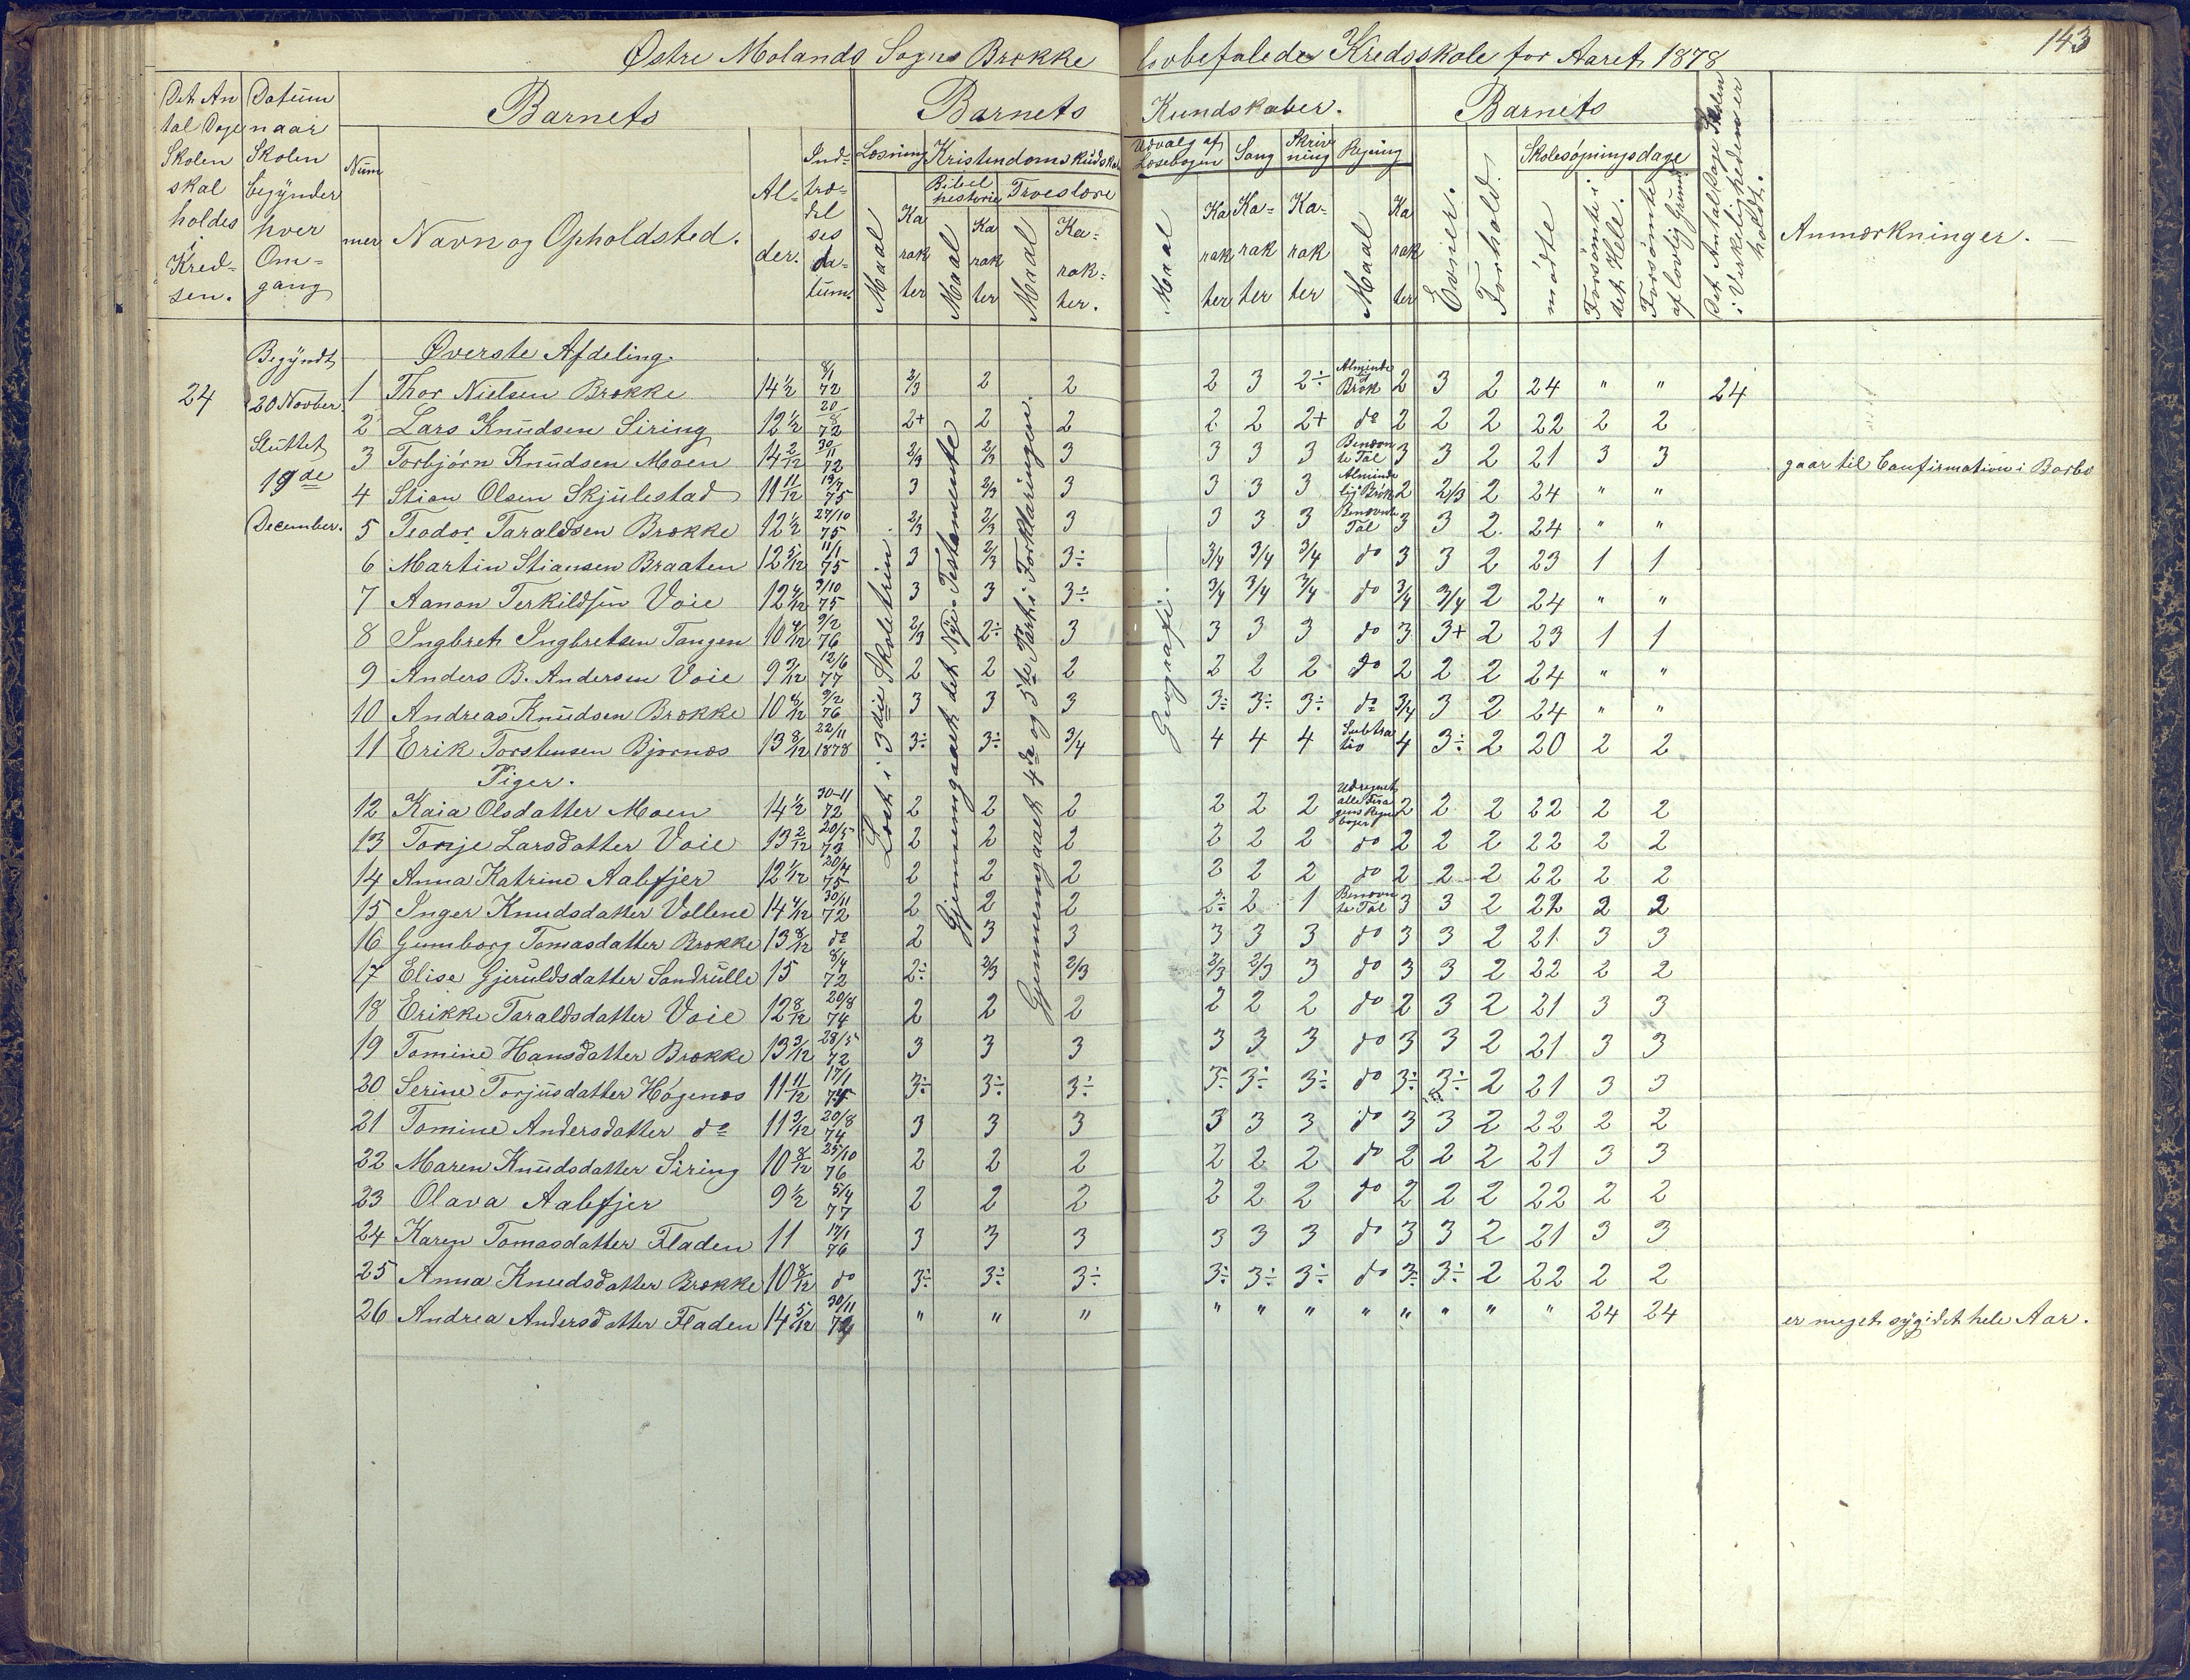 143
Østre Molands Sogns Brække lovbefalede Kredsskole for Aaret 1878
Det Antal Dage Skolen skal holdes i Kredsen.
Datum naar Skolen begynder hver Omgang
Barnets
Nummer
Navn og Opholdsted.
Alder.
Indtrædelsesdatum.
Barnets Kundskaber.
Læsning
Maal
Karakter
Kristendomskudska
Bibelhistorie
Maal
Karakter
Troeslære
Maal
Karakter.
Udvalg af Læsebogen
Maal
Karakter
Sang
Karakter
Skrivning
Karakter
Regning
Maal
Karakter
Barnets
Evner.
Forhold.
Skolesøgningsdage
mødte
Forsømte i det Hele.
Forsømte af lovlig Grund
Det Antal Dage Skolen i Virkeligheden er holdt.
Anmærkninger.
24
Begyndt
20 Novber
Sluttet
19de
December.
Læst i 3die Skoletrin
Gjennemgaaet det Nye Testamente
Gjennemgaaet 4de og 5te Part i Forklaringen.
Geografi.
Øverste Afdeling.
1 Thor Nielsen Brække 14 1/2 8/1 72 2/3 2 2 2 3 2÷ Alminde Brøk 2 3 2 24 " " 24
2 Lars Knudsen Siring 12 1/2 20/8 72 2+ 2 2 2 2 2+ do 2 2 2 22 2 2
3 Torbjørn Knudsen Moen 14 2/12 30/11 72 2/3 2/3 3 3 3 3 Benævnte Tal 3 3 2 21 3 3 gaar til Confirmation i Barbo
4 Stian Olsen Skjulestad 11 11/12 75 3 2/3 3 3 3 3 Almindelig Brøk 2 2/3 2 24 " "
5 Teodor Taraldsen Brække 12 1/2 27/10 75 2/3 2/3 3 3 3 3 Benævnte Tal 3 3 2 24 " "
6 Martin Stiansen Braaten 12 5/12 11/1 75 3 2/3 3÷ 3/4 3/4 3/4 do 3 3 2 23 1 1
7 Aanon Terkildsen Voie 12 4/12 3/10 75 3 3 3÷ 3/4 3/4 3/4 do 3/4 3/4 2 24 " "
8 Ingbret Ingbretsen Tangen 10 4/12 9/2 76 2/3 2÷ 3 3 3 3 do 3 3+ 2 23 1 1
9 Anders B. Andersen Voie 9 3/12 12/6 77 2 2 2 2 2 2 do 2 2 2 24 " "
10 Andreas Knudsen Brække 10 8/12 9/2 76 3 3 3 3÷ 3÷ 3÷ do 3/4 3 2 24 " "
11 Erik Torstensen Bjørnæs 13 8/12 22/11 1878 3÷ 3÷ 3/4 4 4 4 Subtratio 4 3÷ 2 20 2 2
Piger.
12 Kaia Olsdatter Moen 14 1/2 30-11 72 2 2 2 2 2 2 Udregnet alle 2 2 2 22 2 2
13 Tonje Larsdatter Voie 13 2/12 20/5 73 2 2 2 2 2 2 do 2 2 2 22 2 2
14 Anna Katrine Aalefjer 12 1/12 20/4 75 2 2 2 2 2 2 do 2 2 2 22 2 2
15 Inger Knudsdatter Vollene 14 4/12 30/11 72 2 2 2 2÷ 2 1 Benævnte Tal 3 3 2 22 2 2
16 Gunnborg Tomasdatter Brække 13 8/12 do 2 3 3 3 3 3 do 3 3 2 21 3 3
17 Elise Gjeruldsdatter Sandrulle 15 8/4 72 2÷ 2/3 2/3 2/3 2/3 3 do 3 3 2 22 2 2
18 Erikke Taraldsdatter Voie 12 8/12 20/8 74 2 2 2 2 2 2 do 2 3 2 21 3 3
19 Tomine Hansdatter Brække 13 3/12 28/5 72 3 3 3 3 3 3 do 3 3 2 21 3 3
20 Serine Torjusdatter Høgenæs 11 11/12 17/1 75 3÷ 3÷ 3÷ 3÷ 3÷ 3÷ do 3÷ 3÷ 2 21 3 3
21 Tomine Andersdatter do 11 3/12 20/8 74 3 3 3 3 3 3 do 3 3 2 22 2 2
22 Maren Knudsdatter Siring 10 8/12 25/10 76 2 2 2 2 2 2 do 2 2 2 21 3 3
23 Olava Aalefjer 9 1/2 5/4 77 2 2 2 2 2 2 do 2 2 2 22 2 2
24 Karen Tomasdatter Fladen 11 17/1 76 3 3 3 3 3 3 do 3 3 2 21 3 3
25 Anna Knudsdatter Brække 10 8/12 do 3÷ 3÷ 3÷ 3÷ 3÷ 3÷ do 3÷ 3÷ 2 22 2 2
26 Andrea Andersdatter Fladen 14 5/12 30/11 " " " " " " " " " " " 24 24 er meget sygi det hele Aar.